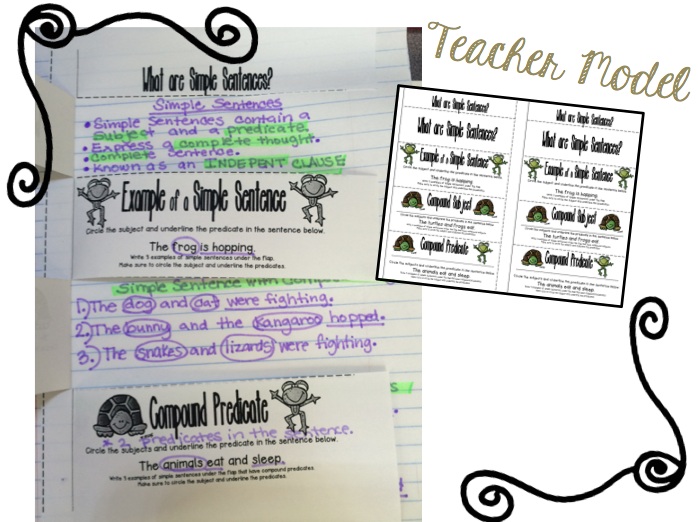 Teacher Model
What are Simple Sentences?
Simple Sentences
• Simple sentences contain a
subject and a predicate.
• Express a complete thought.
• Complete sentence.
• Known as an INDEPENT CLAUSE
Example of a Simple Sentence
Circle the subject and underline the predicate in the sentence below.
The frog is hopping.
Write 3 examples of simple sentences under the flap.
Make sure to circle the subject and underline the predicates.
Simple Sentence with
1.) The dog and cat were fighting.
2.) The bunny and the kangaroo hopped.
3.) The snakes and lizards were fighting.
Compound Predicate
* 2 predicates in the sentence.
Circle the subjects and underline the predicate in the sentence below.
The animals eat and sleep.
Write 3 examples of simple sentences under the flap that have compound predicates.
Make sure to circle the subject and underline the predicates.
What are Simple Sentences?
What are Simple Sentences?
Example of a Simple Sentence
The frog is hopping
Compound Subject
The turtles and frogs eat
Compound Predicate
The animals eat and sleep
What are Simple Sentences?
What are Simple Sentences?
Example of a Simple Sentence
The frog is hopping
Compound Subject
The turtles and frogs eat
Compound Predicate
The animals eat and sleep